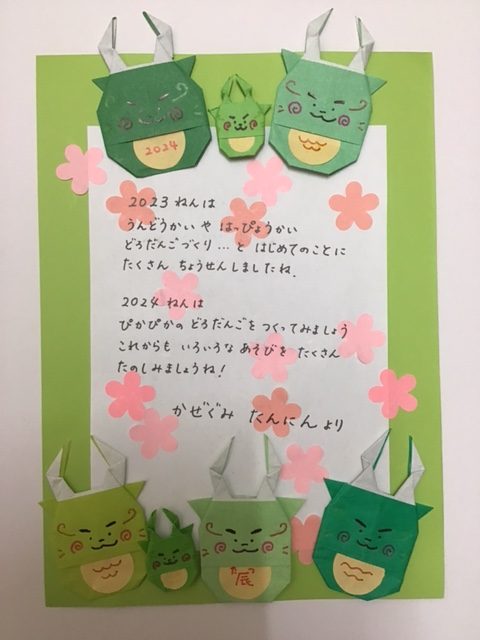 2024
2023 ねんは
うんどうかい や はっぴょうかい
どろだんごづくり … と はじめてのことに
たくさん ちょうせんしましたね.
2024 ねんは
ぴかぴかの どろだんごを つくってみましょう
これからも いろいろな あそびを たくさん
たのしみましょうね!
かぜぐみ たんにん より
辰